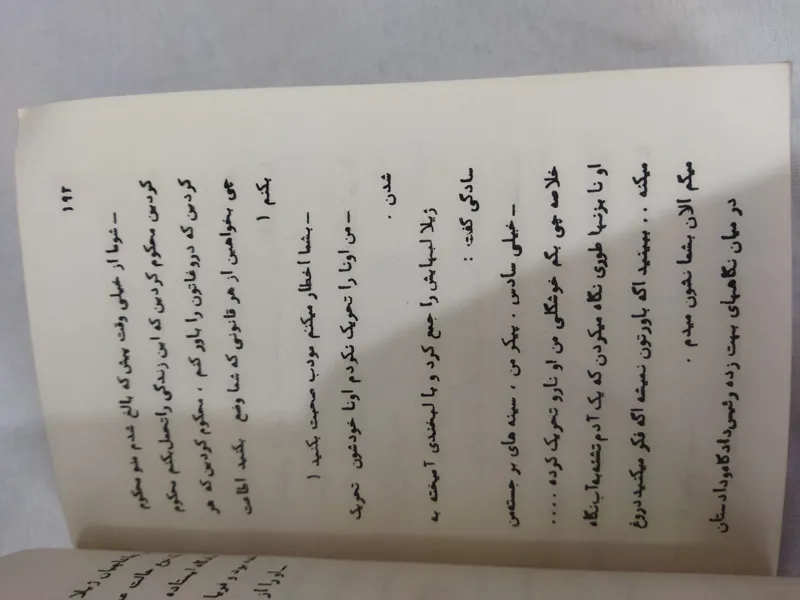 ۱۹۲
ـ شوما از خیلی وقت پیش که بالغ شدم منو محکوم
کردین محکوم کردین که این زندگی را تحمل بکنم محکوم
کردین که دروغاتون را باور کنم ، محکوم کردین که هر
چی بخواهین از هر قانونی که شما وضع بکنید اطاعت
بکنم !
ـ بشما اخطار میکنم مودب صحبت بکنید !
ـ من اونا را تحریک نکردم اونا خودشون تحریک
شدن .
ژیلا لبهایش را جمع کرد و با لبخندی آمیخته به
سادگی گفت :
ـ خیلی سادس . پیکر من ، سینه های برجسته‌من
خلاصه چی بگم خوشگلی من او نارو تحریک کرده ....
او نا بزنها طوری نگاه میکردن که یک آدم تشنه به آب نگاه
میکنه .. ببینید اگه باورتون نمیشه اگه فکر میکنید دروغ
میگم الان بشما نشون میدم .
در میان نگاههای بهت زده رئیس دادگاه و دادستان